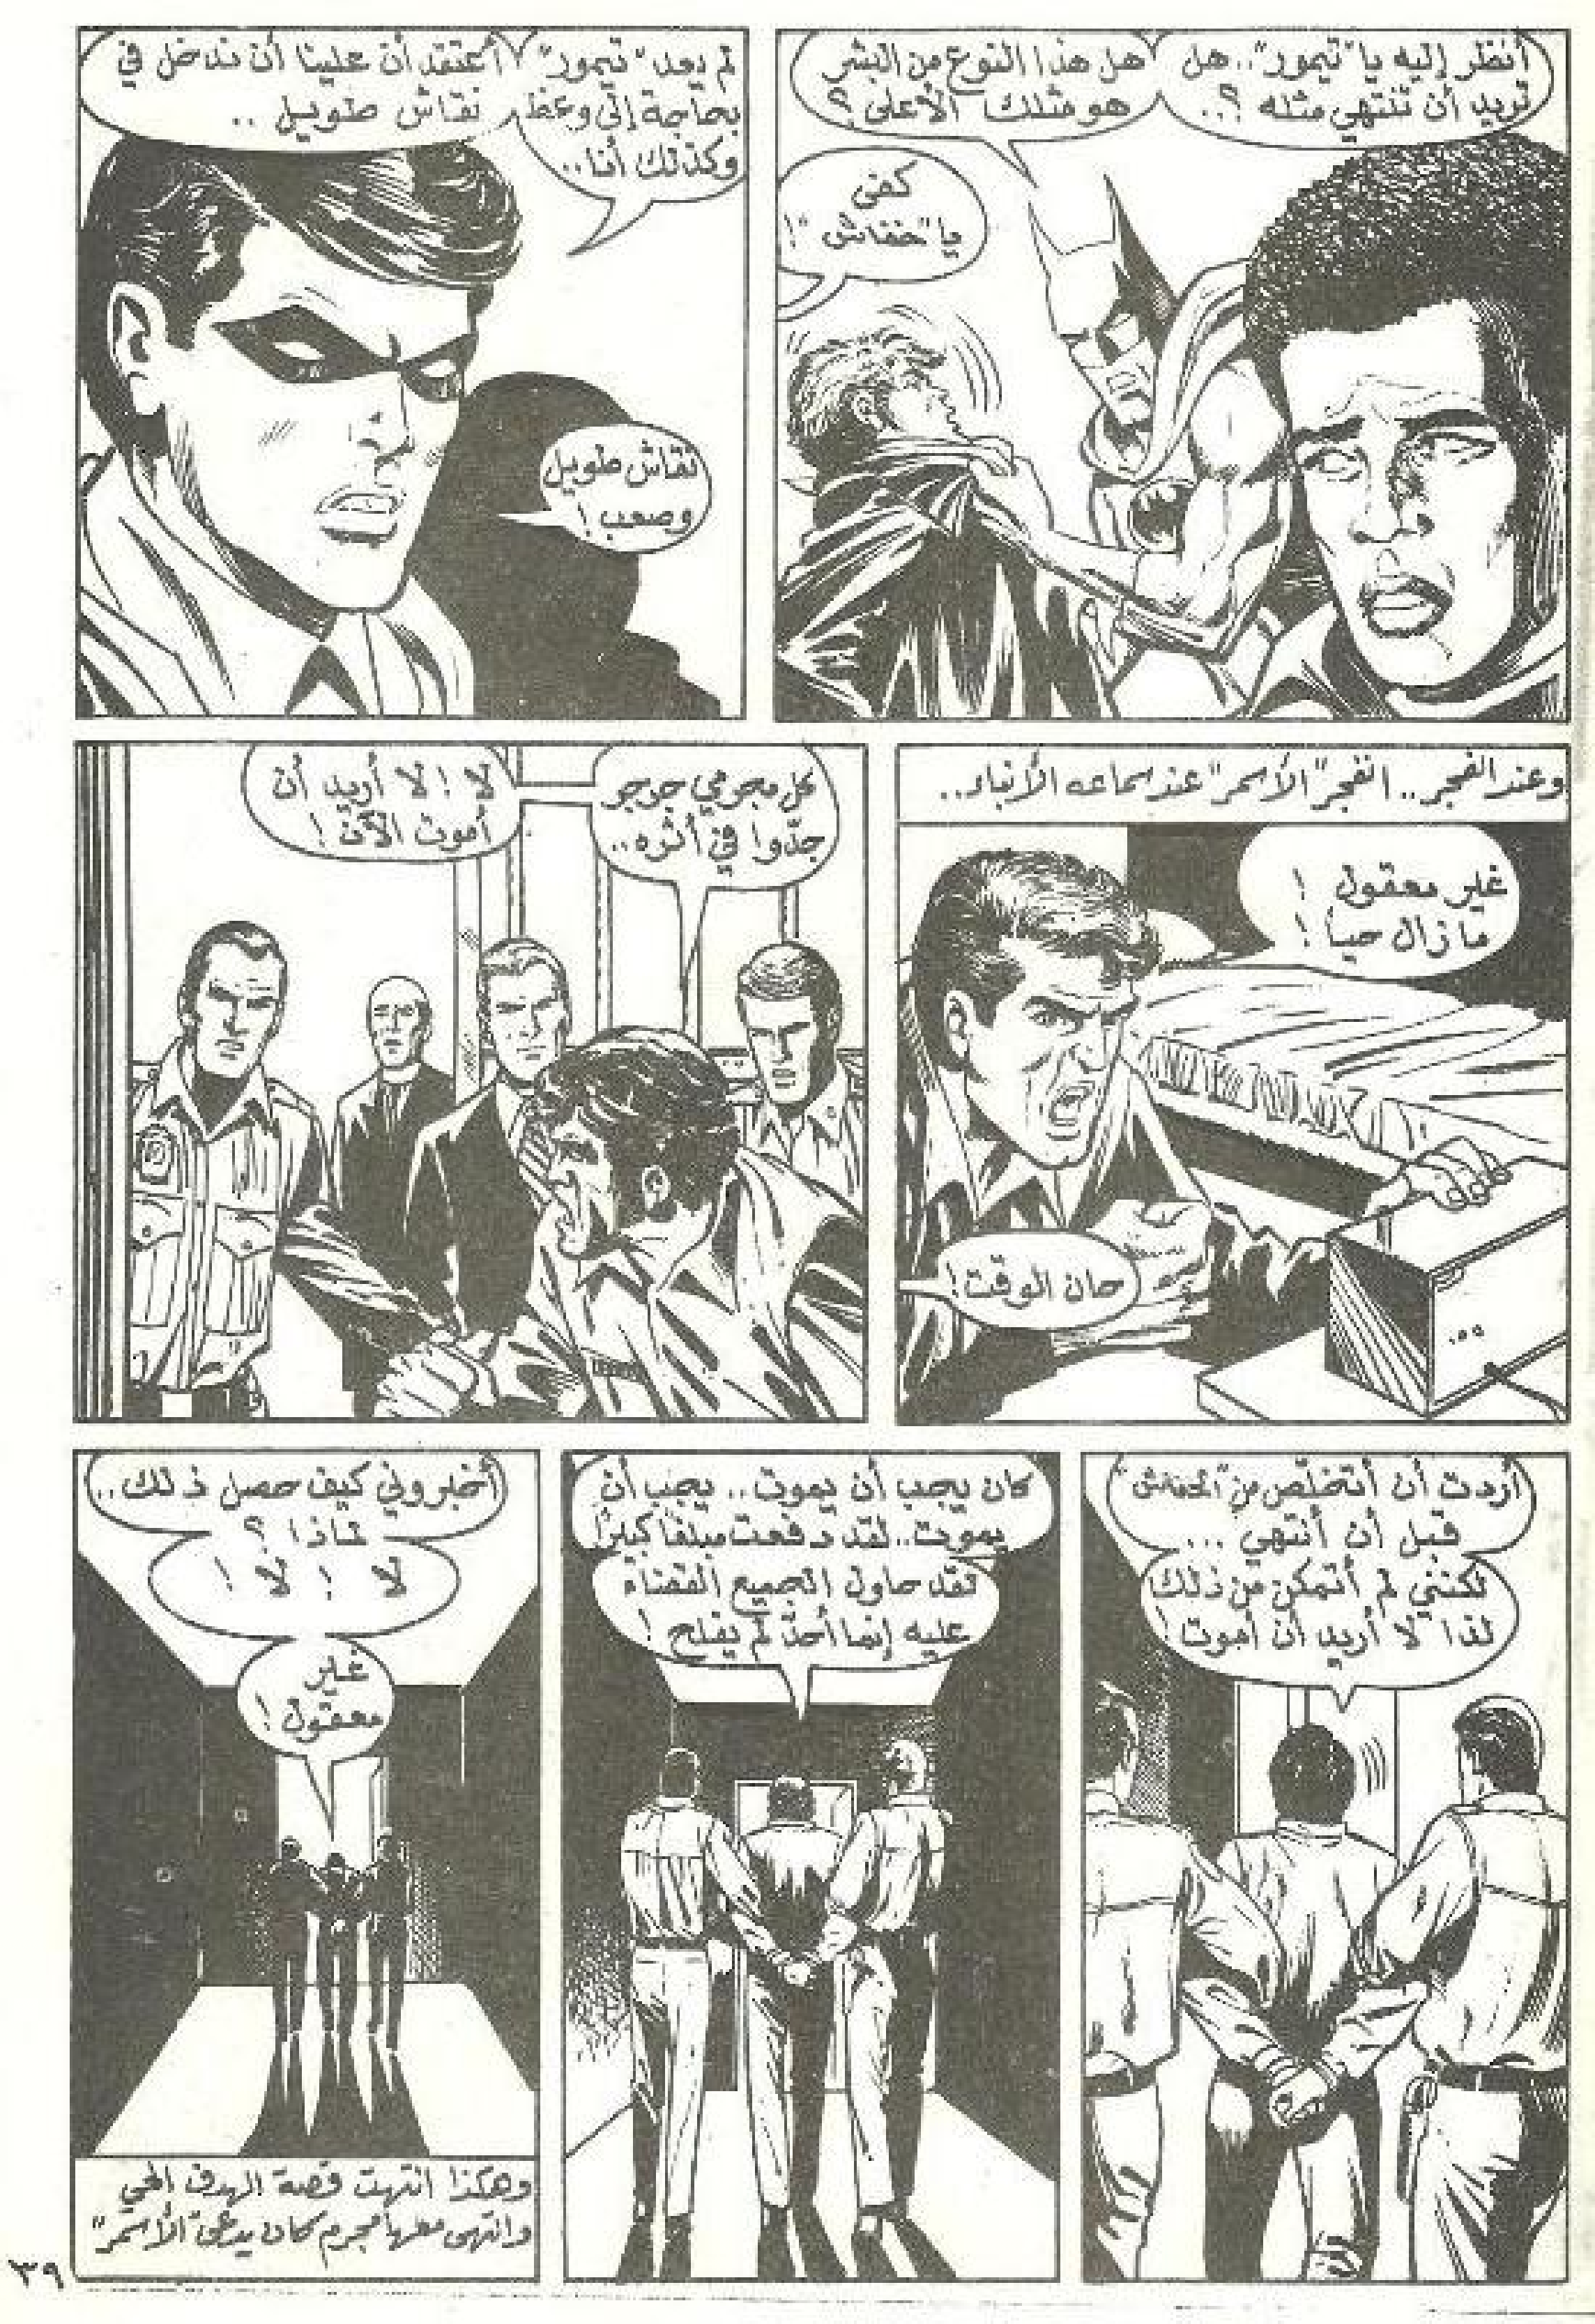 أنظر إليه يا "تيمور".. هل
تريد أن تنتهي مثله ؟..
هل هذا النوع من البشر
هو مثلك الأعلى ؟
كفى
يا "خفاش" !
لم يعد "تيمور"
بحاجة إلى وعظ
وكذلك أنا..
أعتقد أن علينا أن ندخل في
نقاش طويل ..
نقاش طويل
وصعب !
وعند الفجر.. انفجر "الأسمر" عند سماعه الأنباء..
غير معقول !
ما زال حياً !
حان الوقت !
كل مجرمي جوجو
جدّوا في أثره..
لا ! لا أريد أن
أموت الآن !
أردت أن أتخلّص من "الخفاش"
قبل أن أنتهي ...
لكنني لم أتمكن من ذلك
لذا لا أريد أن أموت !
كان يجب أن يموت .. يجب أن
يموت.. لقد دفعت مبلغاً كبيراً
لقد حاول الجميع القضاء
عليه إنما أحدٌ لم يفلح !
أخبروني كيف حصل ذلك ..
لماذا ؟
لا ! لا !
غير
معقول !
وهكذا انتهت قصة الهدف الحي
وانتهى معها مجرم كان يدعى "الأسمر"
٣٩